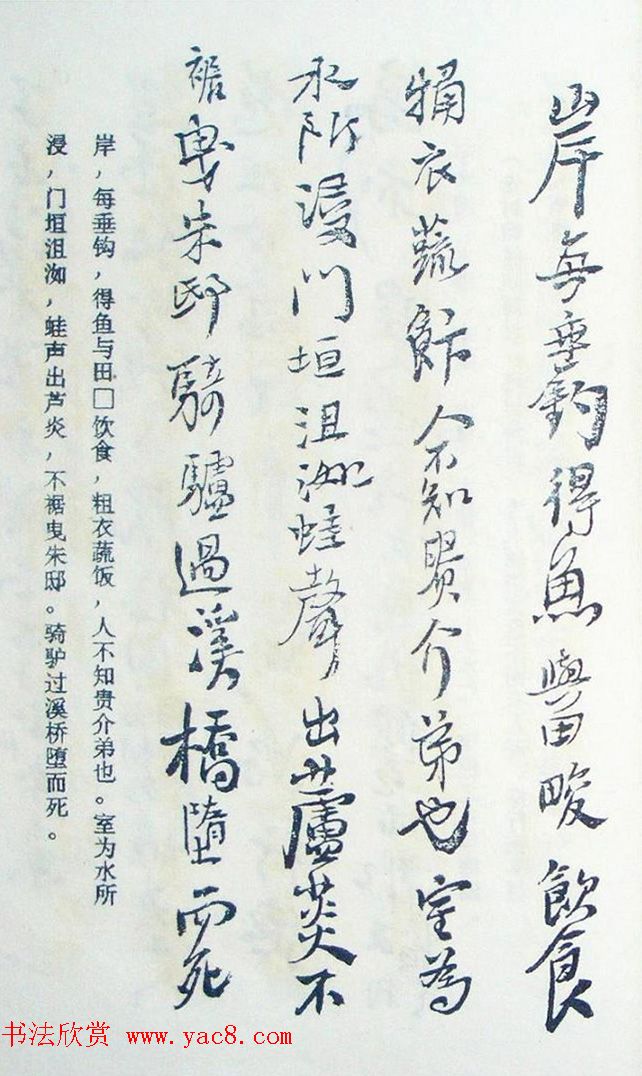 岸每垂釣得魚與田畯飲食
觕衣蔬飰人不知貴介弟也室為
水所浸門垣沮洳蛙聲出蘆菼不
裾曳朱邸騎驢過溪橋墮而死
岸，每垂钩，得鱼与田□饮食，粗衣蔬饭，人不知贵介弟也。室为水所
浸，门垣沮洳，蛙声出芦炎，不裾曳朱邸。骑驴过溪桥堕而死。
书法欣赏 www.yac8.com